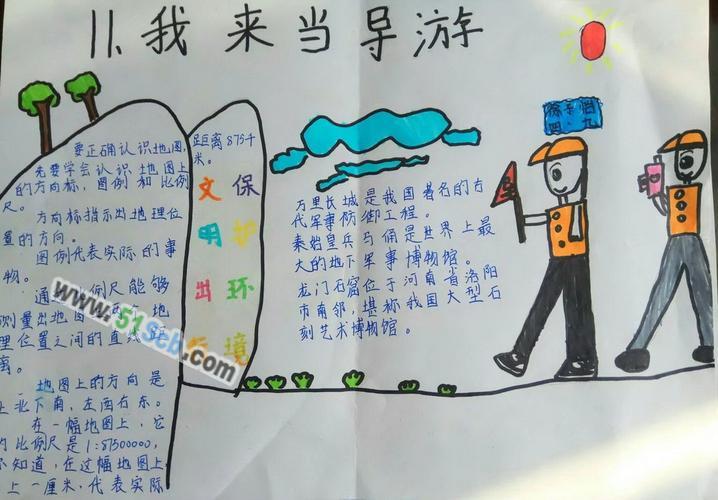 11.我来当导游
要正确认识地图,
先要学会认识地图上
的方向标,图例和比例
尺。
方向标指示出地理位
置的方向。
图例代表实际的事
物。
通 例尺能够
测量出地图 地
理位置之间的直线
离。
地图上的方向是
上北下南,左西右东。
在一幅地图上,它
的比例尺是1:87500000,
不知道,在这幅地图上
上一厘米,代表实际
距离875千
米。
文明出行
保护环境
万里长城是我国著名的古
代军事防御工程。
秦始皇兵马俑是世界上最
大的地下军事博物馆。
龙门石窟位于河南省洛阳
市南郊,堪称我国大型石
刻艺术博物馆。
四.九
www.51Seb.com